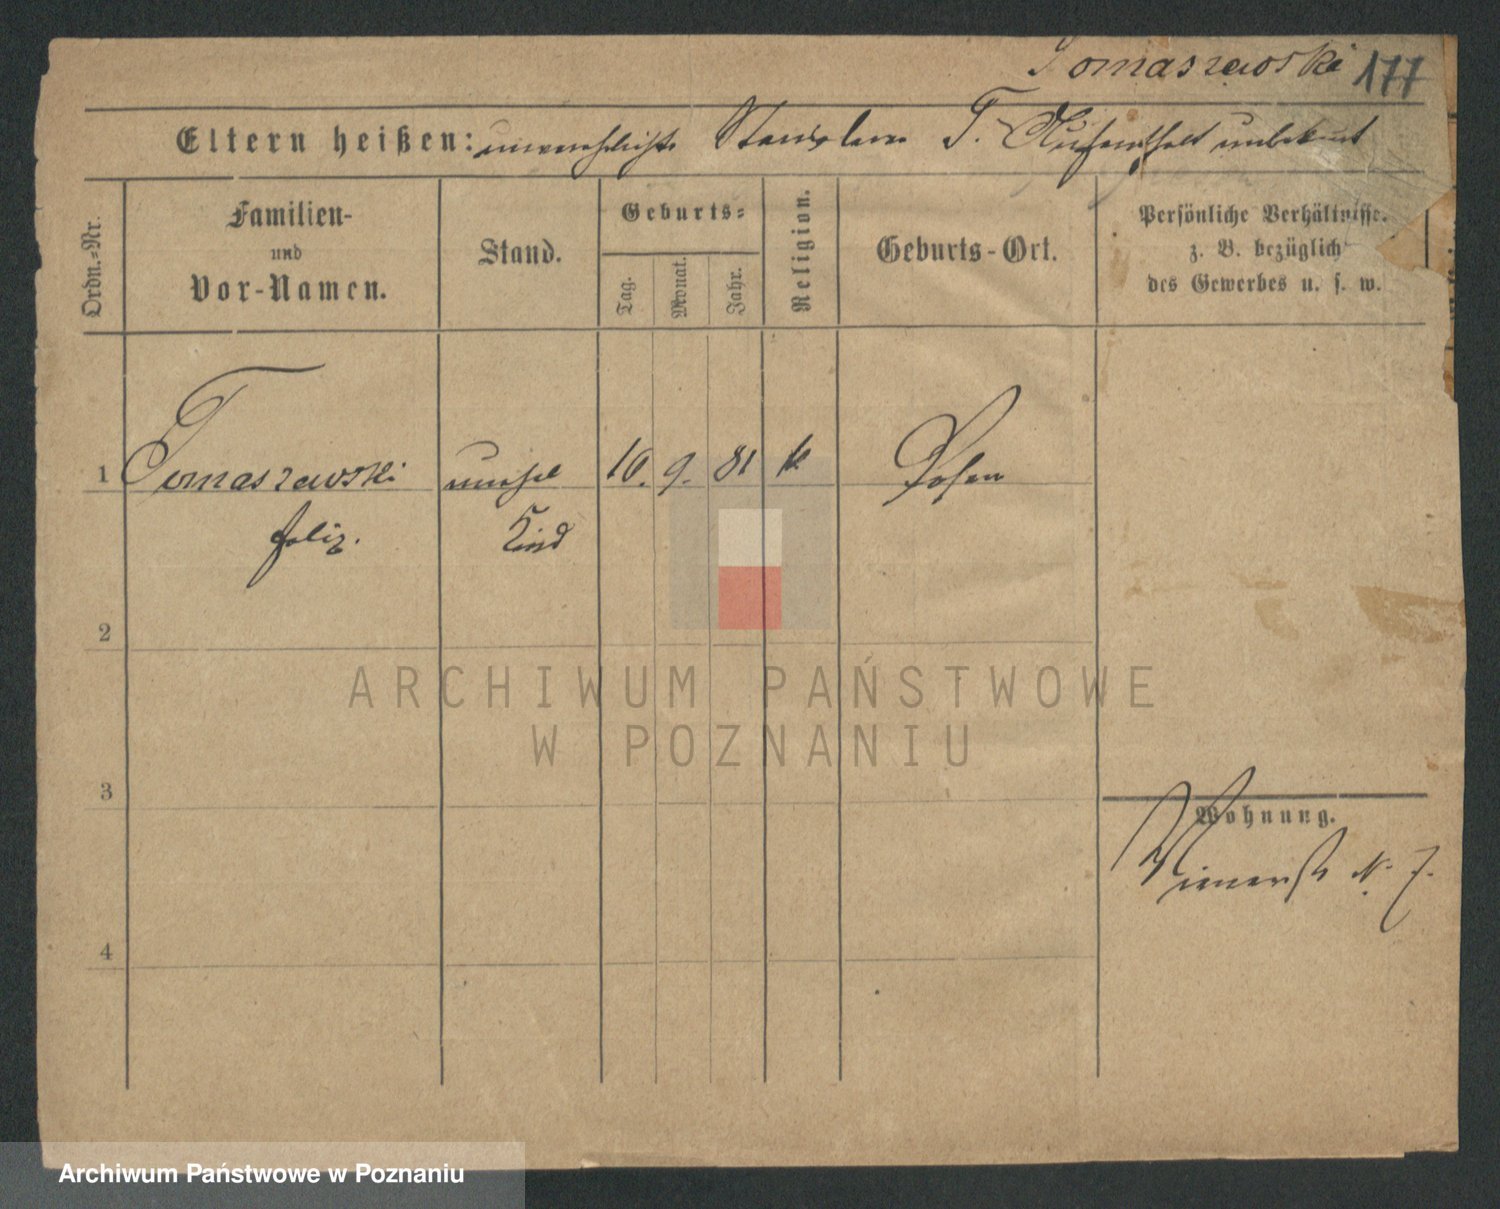 Tomaszewski 177
Eltern heißen: unverehelichte Stanislawa T. Aufenthalt unbekannt
Ordn.-Nr.
Familien-
und
Vor-Namen.
Stand.
Geburts-
Tag.
Monat.
Jahr.
Religion.
Geburts-Ort.
Persönliche Verhältnisse.
z. B. bezüglich
des Gewerbes u. s. w.
1 Tomaszewski unehel 10. 9. 81 k. Posen
Felix. Kind
2
ARCHIWUM PAŃSTWOWE
W POZNANIU
3
Wohnung.
N. 7.
4
Archiwum Państwowe w Poznaniu